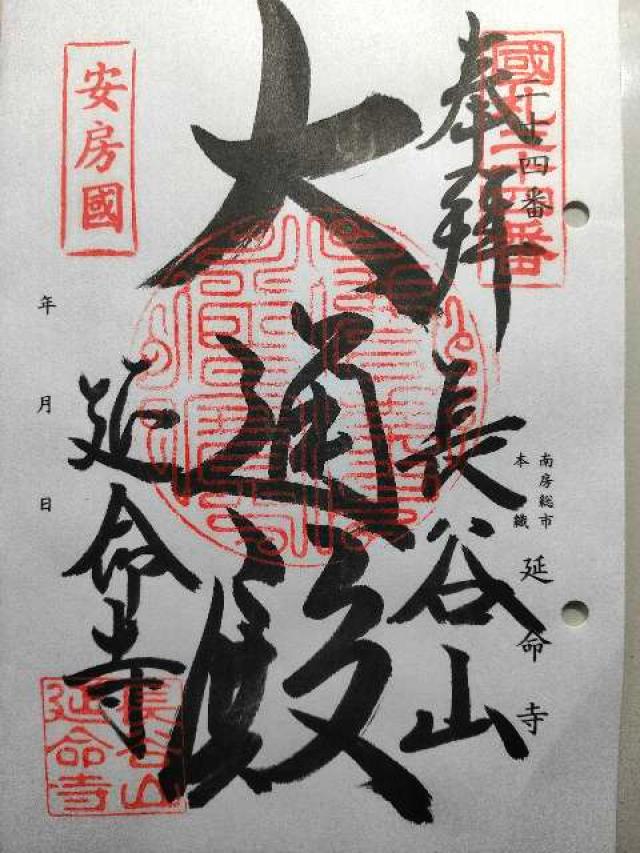 國札二十四番
二十四番
奉拜
長谷山
南房総市
本織
延命寺
大通殿
安房國
延命寺
年 月 日
長谷山
延命寺